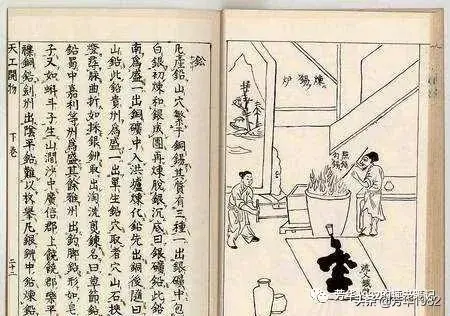 鉛
凡產鉛山穴繁于銅錫其質有三種一出銀礦中包
白銀初煉和銀成團再煉脫銀沉底曰銀礦鉛此鉛
南爲盛一出銅礦中入洪爐煉化鉛先出銅後隨曰
山鉛此鉛貴州爲盛一出單生鉛穴取者穴山石挾
燈尋脉曲折如採銀鉚取出淘洗煎鍊名曰草節鉛
鉛蜀中嘉利等州爲盛其餘雅州出釣脚鉛形如皂
子又如蝌斗子生山澗沙中廣信郡上饒饒郡樂平
雜銅鉛劍州出陰平鉛難以枚舉凡銀鉚中鉛煉鉛
天工開物 下卷
煉錫炉
點鉛勾錫
流入
头条 @芳华1982